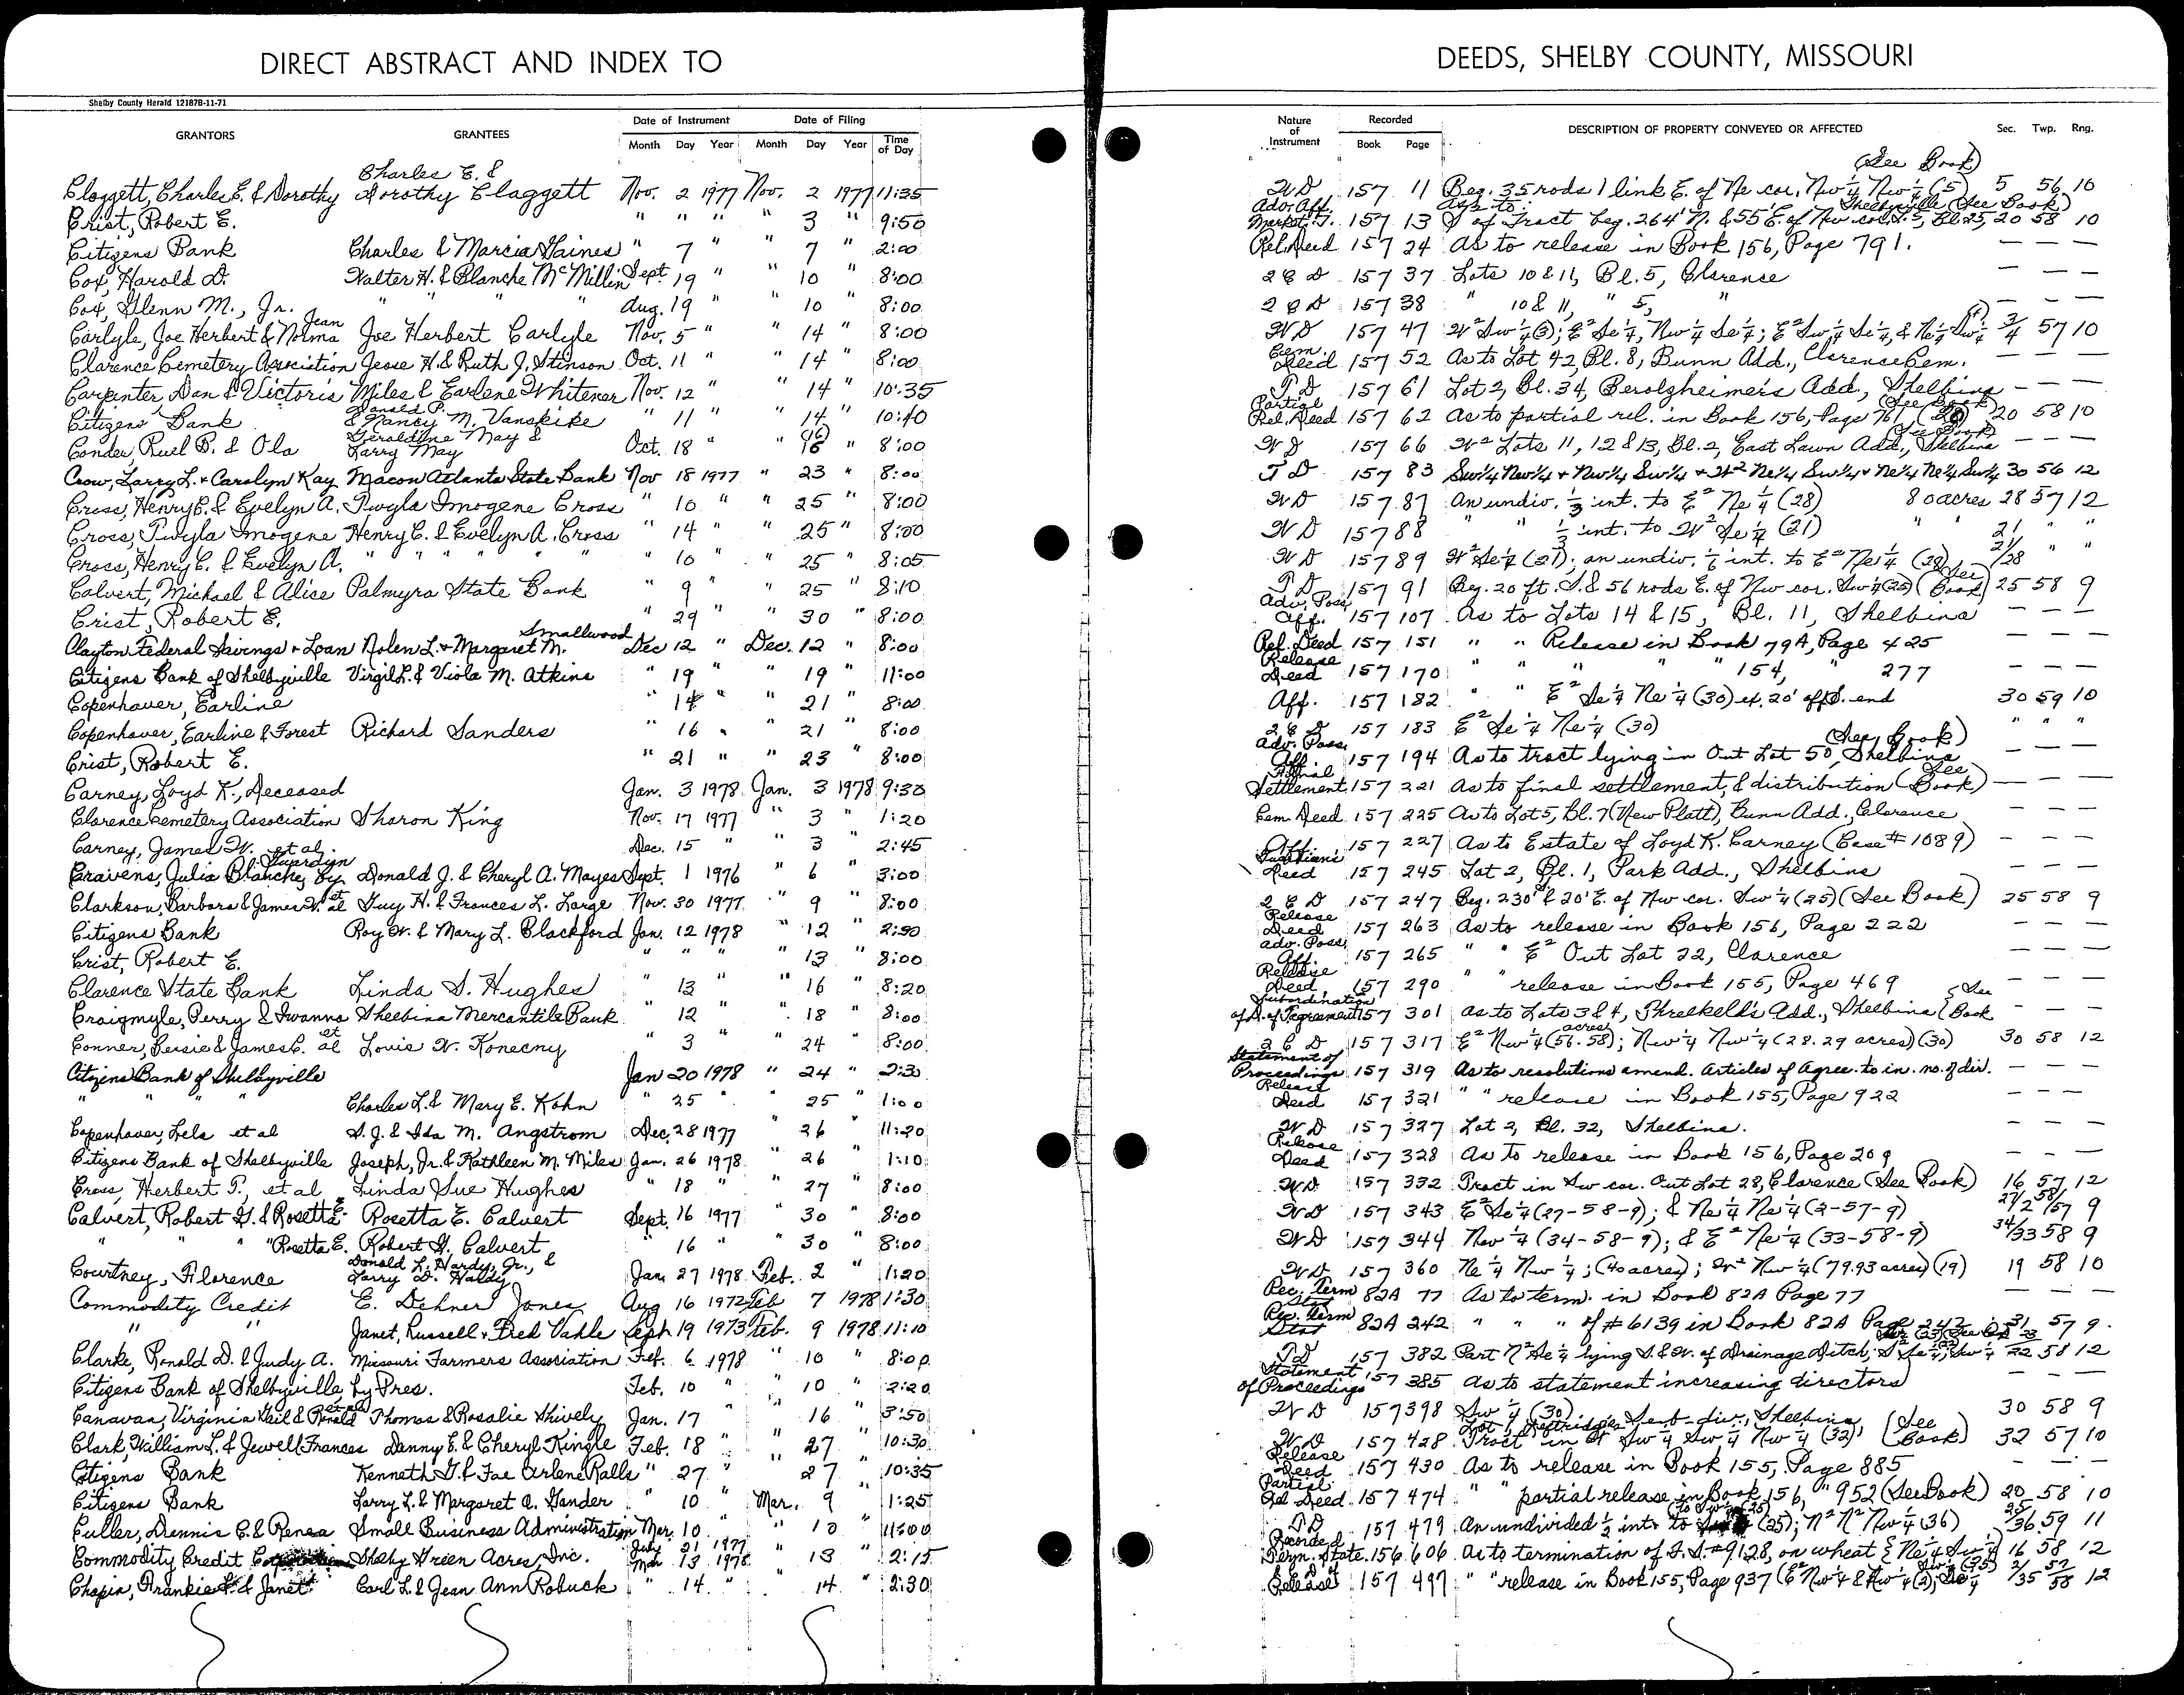 DIRECT ABSTRACT AND INDEX TO
DEEDS, SHELBY COUNTY, MISSOURI
Shelby County Herald 12187B-11-71
GRANTORS GRANTEES Date of Instrument Month Day Year Date of Filing Month Day Year Time of Day
Nature of Instrument Recorded Book Page DESCRIPTION OF PROPERTY CONVEYED OR AFFECTED Sec. Twp. Rng.
Claggett, Charles E. & Dorothy Charles E. & Dorothy Claggett Nov. 2 1977 Nov. 2 1977 11:35 WD 157 11 Beg. 35 rods 1 link E. of Ne cor. Nw 1/4 Nw 1/4 (5) (See Book) 5 56 10
Crist, Robert E. " " " " 3 " 9:50 157 13 of Tract beg. 264' N. & 55' E. of Nw cor. Shelbyville (See Book) 20 58 10
Citizens Bank Charles & Marcia Gaines " 7 " " 7 " 2:00 Rel. Deed 157 24 As to release in Book 156, Page 791. — — —
Cox, Harold D. Walter H. & Blanche McMillin Sept. 19 " " 10 " 8:00 2 C D 157 37 Lots 10 & 11, Bl. 5, Clarence — — —
Cox, Glenn M., Jr. " " " " Aug. 19 " " 10 " 8:00 2 C D 157 38 " 10 & 11, " 5, " — — —
Carlyle, Joe Herbert & Norma Jean Joe Herbert Carlyle Nov. 5 " " 14 " 8:00 WD 157 47 W² Sw 1/4 (3); E² Se 1/4, Nw 1/4 Se 1/4; E² Sw 1/4 Se 1/4 & Ne 1/4 Sw 1/4 (4) 3/4 57 10
Clarence Cemetery Association Jesse H. & Ruth J. Stinson Oct. 11 " " 14 " 8:00 Cem. Deed 157 52 As to Lot 42, Bl. 8, Bunn Add., Clarence Cem. — — —
Carpenter Dan & Victoria Miles & Earlene Whitener Nov. 12 " " 14 " 10:35 T D 157 61 Lot 2, Bl. 34, Berolzheimer's Add., Shelbina — — —
Citizens Bank Donald P. & Nancy M. Vanskike " 11 " " 14 " 10:40 Partial Rel. Deed 157 62 As to partial rel. in Book 156, Page 761 (See Book) 20 58 10
Conder, Ruel B. & Ola Geraldine May & Larry May Oct. 18 " " 16 " 8:00 WD 157 66 W² Lots 11, 12 & 13, Bl. 2, East Lawn Add., Shelbina (See Book) — — —
Crow, Larry L. & Carolyn Kay Macon Atlanta State Bank Nov 18 1977 " 23 " 8:00 T D 157 83 Sw 1/4 Nw 1/4 & Nw 1/4 Sw 1/4 & W² Ne 1/4 Sw 1/4 & Ne 1/4 Ne 1/4 Sw 1/4 30 56 12
Cross, Henry C. & Evelyn A. Twyla Imogene Cross " 10 " " 25 " 8:00 WD 157 87 An undiv. 1/3 int. to E² Ne 1/4 (28) 80 acres 28 57 12
Cross, Twyla Imogene Henry C. & Evelyn A. Cross " 14 " " 25 " 8:00 WD 157 88 " " 1/3 int. to W² Se 1/4 (21) " 21 " "
Cross, Henry C. & Evelyn A. " " " " " 10 " 25 " 8:05 WD 157 89 W² Se 1/4 (21); an undiv. 1/6 int. to E² Ne 1/4 (28) 21/28 " "
Calvert, Michael & Alice Palmyra State Bank " 9 " " 25 " 8:10 T D 157 91 Beg. 20 ft. S. & 56 rods E. of Nw cor. Sw 1/4 (25) (See Book) 25 58 9
Crist, Robert E. " 29 " 30 " 8:00 Adv. Poss. Aff. 157 107 As to Lots 14 & 15, Bl. 11, Shelbina — — —
Clayton Federal Savings & Loan Nolen L. & Margaret M. Smallwood Dec 12 " Dec. 12 " 8:00 Rel. Deed 157 151 " " Release in Book 79A, Page 425 — — —
Citizens Bank of Shelbyville Virgil L. & Viola M. Atkins " 19 " " 19 " 11:00 Release Deed 157 170 " " " " 154, " 277 — — —
Copenhaver, Earline " 14 " " 21 " 8:00 Aff. 157 182 " " E² Se 1/4 Ne 1/4 (30) ex. 20' off S. end 30 59 10
Copenhaver, Earline & Forest Richard Sanders " 16 " " 21 " 8:00 2 C D 157 183 E² Se 1/4 Ne 1/4 (30) " " "
Crist, Robert E. " 21 " " 23 " 8:00 Adv. Poss. Aff. 157 194 As to tract lying in Out Lot 50, Shelbina (See Book) — — —
Carney, Loyd K., Deceased Jan. 3 1978 Jan. 3 1978 9:30 Final Settlement 157 221 As to final settlement & distribution (See Book) — — —
Clarence Cemetery Association Sharon King Nov. 17 1977 " 3 " 1:20 Cem. Deed 157 225 As to Lot 5, Bl. 7 (New Platt), Bunn Add., Clarence — — —
Carney, James W. et al. Dec. 15 " " 3 " 2:45 Aff. 157 227 As to Estate of Loyd K. Carney (Case # 1089) — — —
Cravens, Julia Blanche, by Guardian Donald J. & Cheryl A. Mayes Sept. 1 1976 " 6 " 3:00 Guardian's Deed 157 245 Lot 2, Bl. 1, Park Add., Shelbina — — —
Clarkson, Barbara & James W. et al Guy H. & Frances L. Large Nov. 30 1977 " 9 " 8:00 2 C D 157 247 Beg. 230' & 20' E. of Nw cor. Sw 1/4 (25) (See Book) 25 58 9
Citizens Bank Roy W. & Mary L. Blackford Jan. 12 1978 " 12 " 2:30 Release Deed 157 263 As to release in Book 156, Page 222 — — —
Crist, Robert E. " " " " 13 " 8:00 Adv. Poss. Aff. 157 265 " " E² Out Lot 22, Clarence — — —
Clarence State Bank Linda S. Hughes " 13 " " 16 " 8:20 Release Deed 157 290 " " release in Book 155, Page 469 — — —
Craigmyle, Perry & Iwanna Shelbina Mercantile Bank " 12 " " 18 " 8:00 Subordination of Agreement 157 301 as to Lots 3 & 4, Threlkeld's Add., Shelbina (See Book — — —
Conner, Bessie & James C. et al Louis W. Konecny " 3 " " 24 " 8:00 2 C D 157 317 E² Nw 1/4 (56.58 acres); Nw 1/4 Nw 1/4 (28.29 acres) (30) 30 58 12
Citizens Bank of Shelbyville Jan 20 1978 " 24 " 2:30 Statement of Proceedings 157 319 As to resolutions amend. Articles of Agree. to in. no. of dir. — — —
" " " " Charles L. & Mary E. Kohn " 25 " " 25 " 1:00 Release Deed 157 321 " " release in Book 155, Page 922 — — —
Copenhaver, Lela et al S. J. & Ida M. Angstrom Dec. 28 1977 " 26 " 11:20 WD 157 327 Lot 2, Bl. 32, Shelbina. — — —
Citizens Bank of Shelbyville Joseph, Jr. & Kathleen M. Miles Jan. 26 1978 " 26 " 1:10 Release Deed 157 328 As to release in Book 156, Page 209 — — —
Cross, Herbert T., et al Linda Sue Hughes " 18 " " 27 " 8:00 WD 157 332 Tract in Sw cor. Out Lot 28, Clarence (See Book) 16 57 12
Calvert, Robert G. & Rosetta E. Rosetta E. Calvert Sept. 16 1977 " 30 " 8:00 WD 157 343 E² Se 1/4 (27-58-9); & Ne 1/4 Ne 1/4 (2-57-9) 27/2 58/57 9
" " " Rosetta E. Robert G. Calvert " 16 " " 30 " 8:00 WD 157 344 Nw 1/4 (34-58-9); & E² Ne 1/4 (33-58-9) 34/33 58 9
Courtney, Florence Donald L. Hardy, Jr., & Larry D. Hardy Jan. 27 1978 Feb. 2 " 1:20 WD 157 360 Ne 1/4 Nw 1/4; (40 acres); W² Nw 1/4 (79.93 acres) (19) 19 58 10
Commodity Credit E. Dehner Jones Aug 16 1972 Feb 7 1978 1:30 Rec. Term Stat 82A 77 As to term. in Book 82A Page 77 — — —
" " Janet, Russell & Fred Vahle Sept 19 1973 Feb. 9 1978 11:10 Rec. Term Stat 82A 242 " " " of # 6139 in Book 82A Page 242 31 57 9
Clarke, Ronald D. & Judy A. Missouri Farmers Association Feb. 6 1978 " 10 " 8:00 TD 157 382 Part N² Se 1/4 lying S. & W. of Drainage Ditch; 22 58 12
Citizens Bank of Shelbyville, by Pres. Feb. 10 " " 10 " 2:20 Statement of Proceedings 157 385 As to statement increasing directors — — —
Canavan, Virginia Gail & Ronald et al Thomas & Rosalie Shively Jan. 17 " " 16 " 3:50 WD 157 398 Sw 1/4 (30) 30 58 9
Clark, William L. & Jewell Frances Danny E. & Cheryl Kingle Feb. 18 " " 27 " 10:30 WD 157 428 Tract in Sw 1/4 Sw 1/4 Nw 1/4 (32) Sub-div., Shelbina (See Book) 32 57 10
Citizens Bank Kenneth G. & Fae Arlene Ralls " 27 " " 27 " 10:35 Release Deed 157 430 As to release in Book 155, Page 885 — — —
Citizens Bank Larry L. & Margaret A. Gander " 10 " Mar. 9 " 1:25 Partial Rel Deed 157 474 " " partial release in Book 156, " 952 (See Book) 20 58 10
Culler, Dennis C. & Renea Small Business Administration Mar. 10 " " 10 " 11:00 TD 157 479 An undivided 1/2 int. to (25); N² N² Nw 1/4 (36) 25/36 59 11
Commodity Credit Shelby Green Acres, Inc. July 21 1977 Mar. 13 1978 " 13 " 2:15 Recorded Term. State. 156 606 As to termination of F.S. #9128, on wheat { Ne 1/4 Sw 1/4 16 58 12
Chapin, Frankie L. & Janet Carl L. & Jean Ann Robuck " 14 " 14 " 2:30 Release 157 497 " " release in Book 155, Page 937 (E² Nw 1/4 & Nw 1/4 (2); 2/35 57/58 12